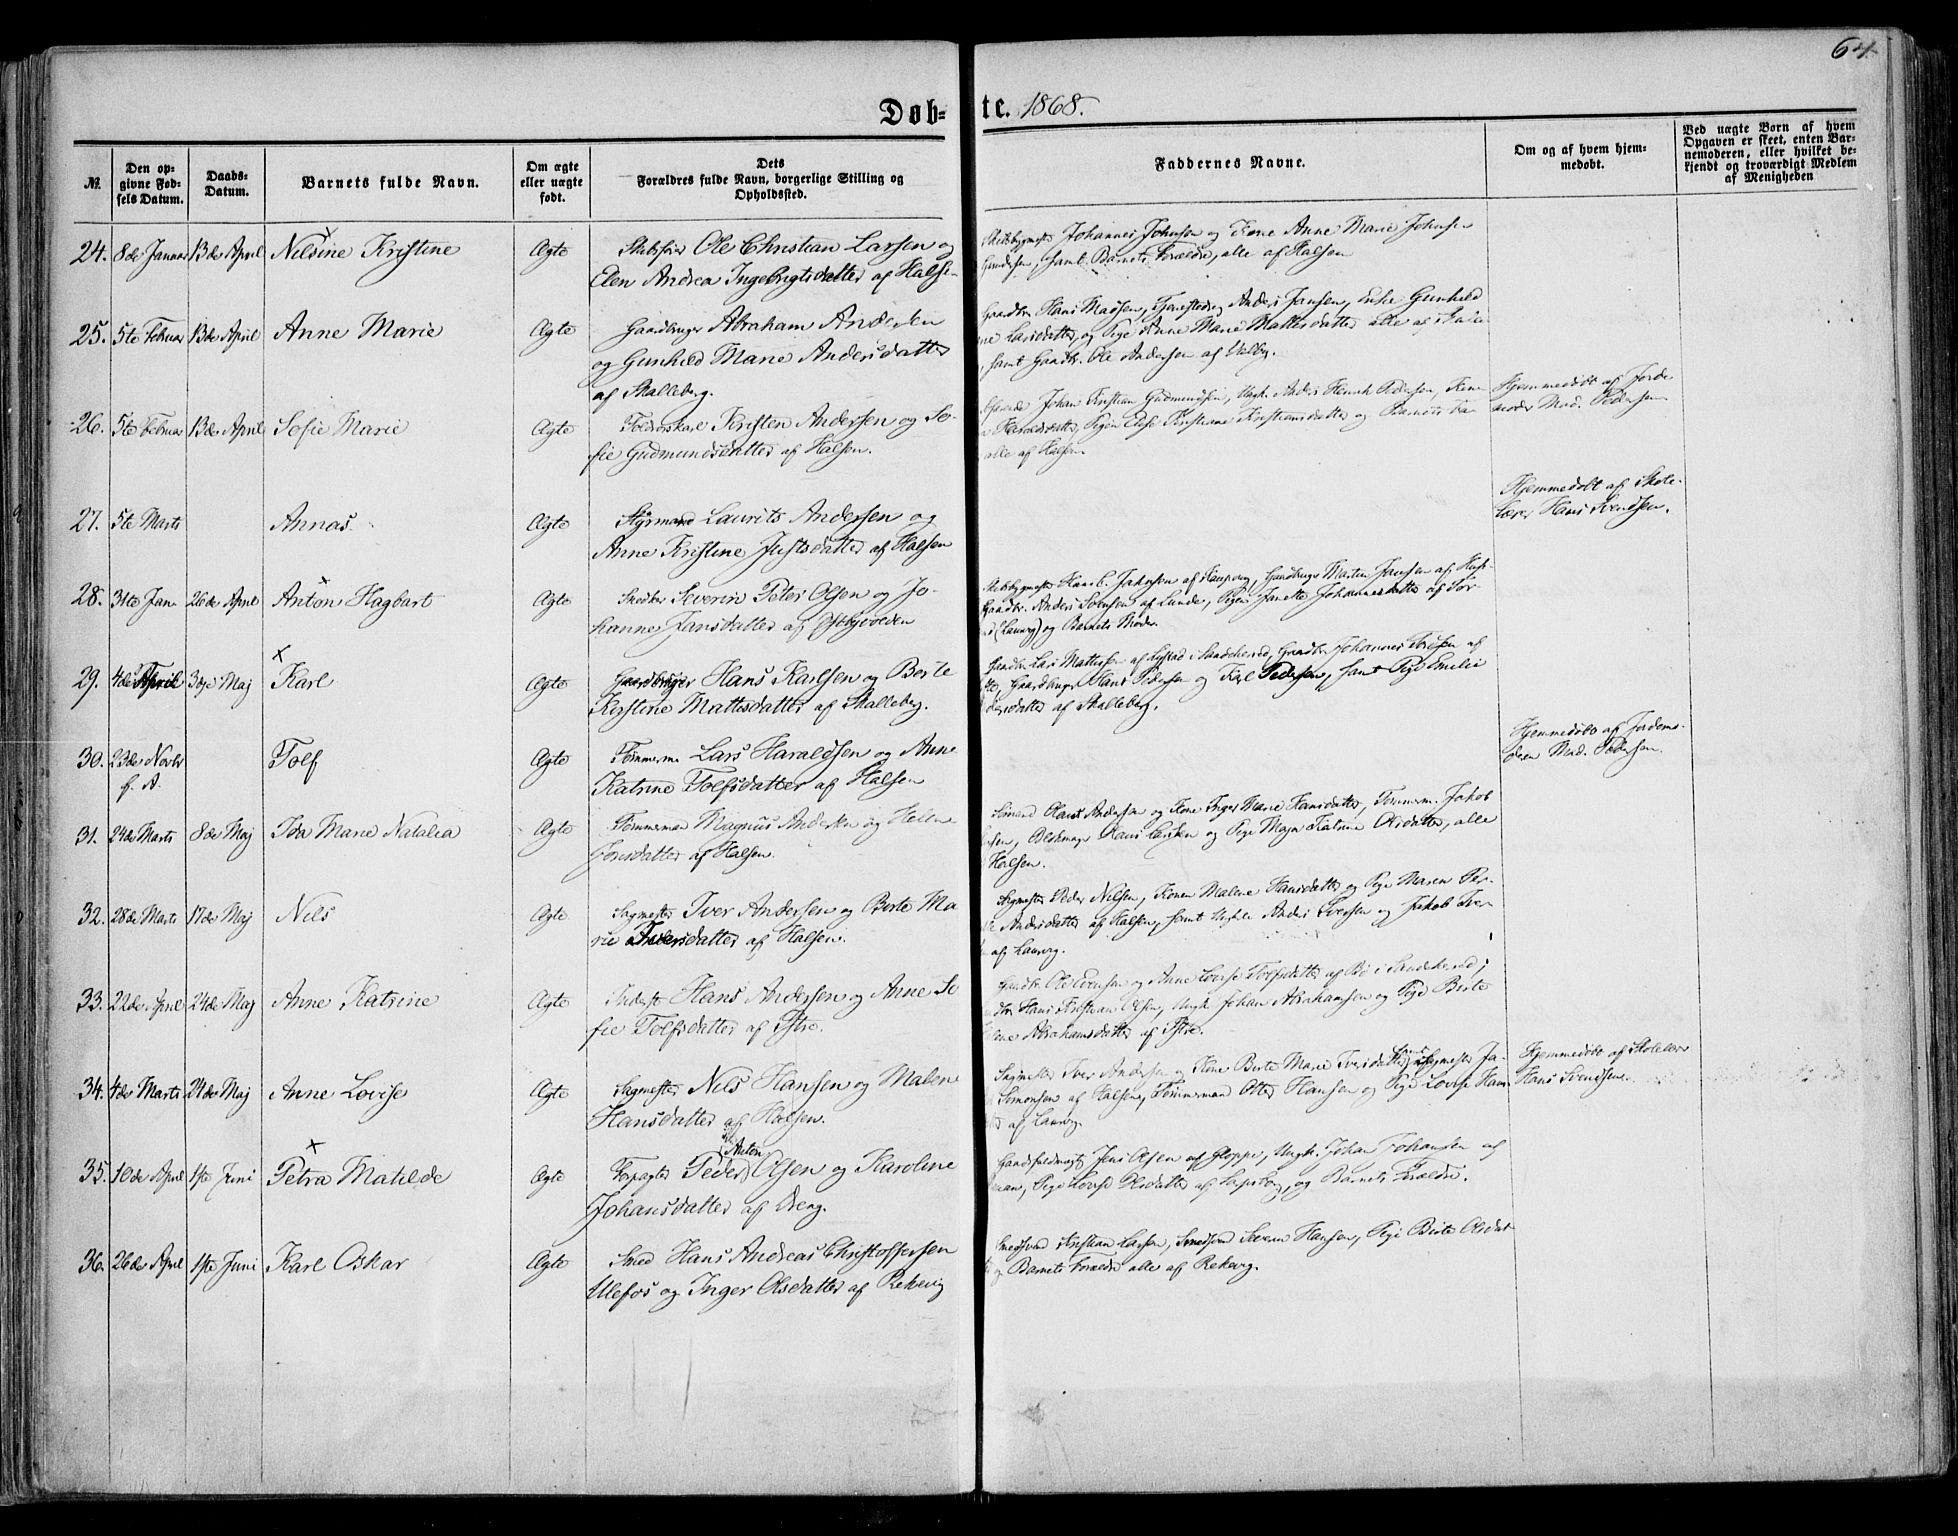 64.
Døb=
te. 1868.
№.
Den op-
givne Fød-
sels Datum.
Daabs-
Datum.
Barnets fulde Navn.
Om ægte
eller uægte
født.
Dets
Forældres fulde Navn, borgerlige Stilling og
Opholdssted.
Faddernes Navne.
Om og af hvem hjem-
medøbt.
Ved uægte Børn af hvem
Opgaven er skeet, enten Bar-
nemoderen, eller hvilket be-
kjendt og troværdigt Medlem
af Menigheden
24. 8de Januar 13de April Nilsine Kristine Ægte Ole Christian Larsen og
Elen Andrea Ingebrigtsdatter af Halsen
Johannes Johnsen og Kone Anne Marie Johnsen
Gundersen, samt Barnets Forældre, alle af Halsen
25. 5te Februar 13de April Anne Marie Ægte Gaardbruger Abraham Andersen
og Gunhild Marie Andersdatter
af Skalleberg.
Gaardbr. Hans Madsen, Anders Jansen, Enke Gunhild
Larsdatter, og Pige Anne Marie Mattisdatter alle af
, samt Gaardbr. Ole Andersen af Valby.
26. 5te Februar 13de April Sofie Marie Ægte Kristen Andersen og So-
fie Gudmundsdatter af Halsen.
Johan Kristian Gudmundsen, Ungk. Anders Henrik Pedersen, Kone
Haraldsdatter, Pigen Else Kristiane Kristiansdatter og Barnets Fa-
alle af Halsen.
Hjemmedøbt af Jorde
moder Mad. Pedersen
27. 5te Marts Annas Ægte Styrmand Laurits Andersen og
Anne Kristine Justsdatter af Halsen
Hjemmedøbt af Skole-
lærer Hans Svendsen.
28. 31te Jan. 26de April Anton Hagbart Ægte Snedker Severin Peter Olsen og Jo-
hanne Jansdatter af Østbyvolden
Gaardbruger Martin Jansen af
Gaardbr. Anders Svensen af Lunde, Pigen Janette Johannesdatter af Tor-
(Laurvig) og Barnets Moder.
29. 4de April 3die Maj Karl Ægte Gaardbruger Hans Karlsen og Berte
Kirstine Mattisdatter af Skalleberg.
Gaardbr. Lars Mattissen af i Sandeherred, Gaardbr. Johannes af
Gaardbruger Hans Pedersen og Karl Pedersen, samt Pige Emilie
dersdatter af Skalleberg.
30. 23de Novbr
f. A.
Tolf Ægte Tømmerm. Lars Haraldsen og Anne
Katrine Tolfsdatter af Halsen
Hjemmedøbt af Jordemo-
deren Mad. Pedersen.
31. 24de Marts 8de Maj Ida Marie Natalia Ægte Tømmerman Magnus Andersen og Helene
Jonsdatter af Halsen.
Sømand Hans Andersen og Kone Inger Marie Hansdatter, Tømmerm. Jakob
Blokmager Hans Larsen og Pige Maja Katrine Olsdatter, alle
Halsen.
32. 28de Marts 17de Maj Nils Ægte Sagmester Iver Andersen og Berte Ma
rie Iversdatter af Halsen.
Sagmester Peder Nilsen, Konen Malene Hansdatter og Pige Maren Per-
Andersdatter af Halsen, samt Ungk. Anders Iversen og Jakob Iver-
af Laurvig.
33. 22de April 24de Maj Anne Katrine Ægte Inderst Hans Andersen og Anne So
fie Tolfsdatter af Istre.
Gaardbr. Ole Evensen og Anne Lovise Tolfsdatter af Bø i Sandeherred,
Hans Kristian Olsen, Ungk. Johan Abrahamsen og Pige Berte
lene Abrahamsdatter af Istre.
34. 4de Marts 24de Maj Anne Lovise Ægte Sagmester Nils Hansen og Malene
Hansdatter af Halsen.
Sagmester Iver Andersen og Kone Berte Marie Iversdatter, Sagmester Ja-
Simonsen af Halsen, Tømmerman Otter Hansen og Pige Lovise Hans
af Laurvig.
Hjemmedøbt af Skolelærer
Hans Svendsen.
35. 10de April 1ste Juni Petra Matilde Ægte Forpagter Peder Anton Olsen og Karoline
Johansdatter af Berg.
Gaardfuldmægt. Jens Olsen af Gloppe, Ungk. Johan Johansen af
Pige Lovise Olsdatter af, og Barnets Forældre.
36. 26de April 1ste Juni Karl Oskar Ægte Smed Hans Andreas Christoffersen
Ulefos og Inger Olsdatter af Rekevig
Smedsvend Kristian Larsen, Smedsvend Severin Hansen, Pige Berte Olsdat
og Barnets Forældre alle af Rekevig.